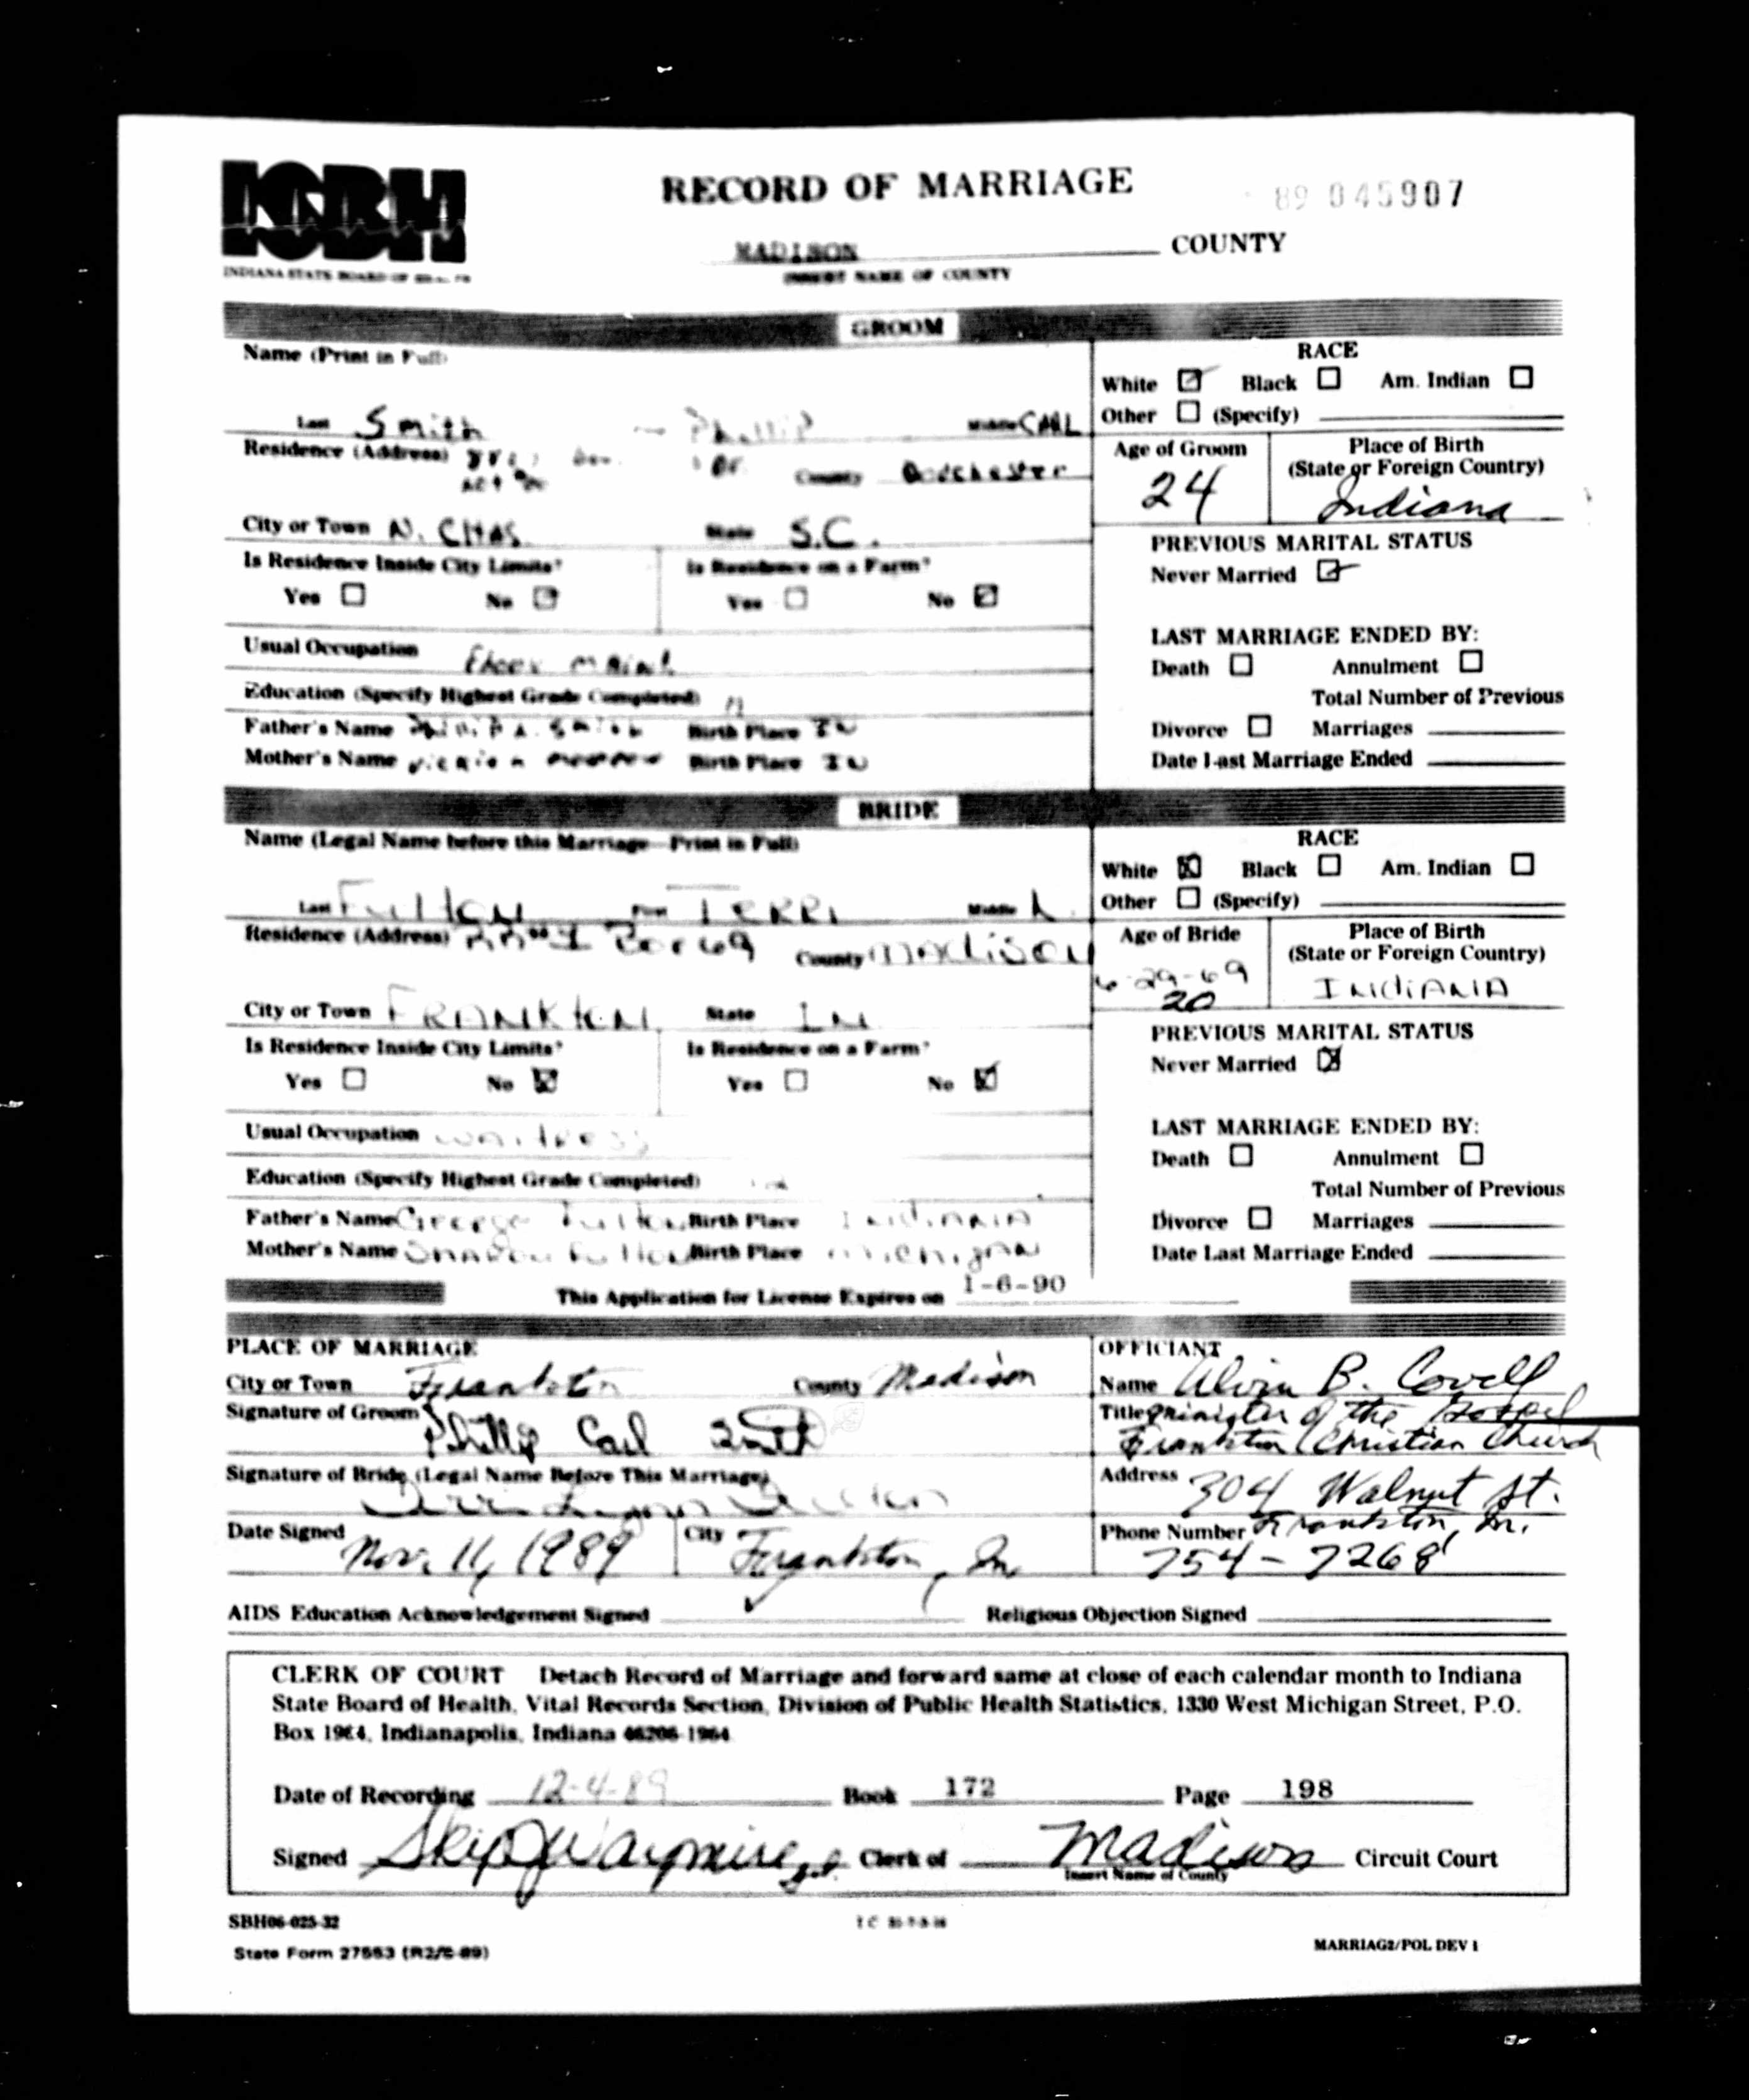 ISBH
RECORD OF MARRIAGE
89 045907
MADISON COUNTY
INSERT NAME OF COUNTY
INDIANA STATE BOARD OF
GROOM
Name (Print in Full)
RACE
White Black Am. Indian
Other (Specify)
Last Smith Phillip Middle CARL
Residence (Address) County
Age of Groom 24
Place of Birth
(State or Foreign Country)
Indiana
City or Town N. CHAS. State S.C.
PREVIOUS MARITAL STATUS
Is Residence Inside City Limits? Is Residence on a Farm?
Never Married
Yes No Yes No
LAST MARRIAGE ENDED BY:
Usual Occupation
Death Annulment
Education (Specify Highest Grade Completed)
Total Number of Previous
Father's Name Smith Birth Place IN
Divorce Marriages
Mother's Name Birth Place IN
Date Last Marriage Ended
BRIDE
Name (Legal Name before this Marriage—Print in Full)
RACE
White Black Am. Indian
Other (Specify)
Last Fulton First TERRI Middle L.
Residence (Address) County Madison
Age of Bride
6-29-69
20
Place of Birth
(State or Foreign Country)
INdiANA
City or Town FRANKTON State IN
PREVIOUS MARITAL STATUS
Is Residence Inside City Limits? Is Residence on a Farm?
Never Married
Yes No Yes No
Usual Occupation waitress
LAST MARRIAGE ENDED BY:
Death Annulment
Education (Specify Highest Grade Completed)
Total Number of Previous
Father's Name George Fulton Birth Place INdiANA
Divorce Marriages
Mother's Name Sharon Fulton Birth Place Michigan
Date Last Marriage Ended
This Application for License Expires on 1-6-90
PLACE OF MARRIAGE
OFFICIANT
City or Town Frankton County Madison
Name Alvin B. Covell
Signature of Groom Phillip Carl Smith
Title Minister of the Gospel
Frankton Christian Church
Signature of Bride (Legal Name Before This Marriage)
Terri Lynn Fulton
Address 304 Walnut St.
Frankton, In.
Date Signed Nov. 11, 1989 City Frankton, In
Phone Number
754-7268
AIDS Education Acknowledgement Signed Religious Objection Signed
CLERK OF COURT Detach Record of Marriage and forward same at close of each calendar month to Indiana
State Board of Health, Vital Records Section, Division of Public Health Statistics, 1330 West Michigan Street, P.O.
Box 1964, Indianapolis, Indiana 46206-1964
Date of Recording 12-4-89 Book 172 Page 198
Signed Skip Waymire Clerk of Madison Circuit Court
Insert Name of County
SBH06-025-32
State Form 27553
MARRIAG2/POL DEV 1